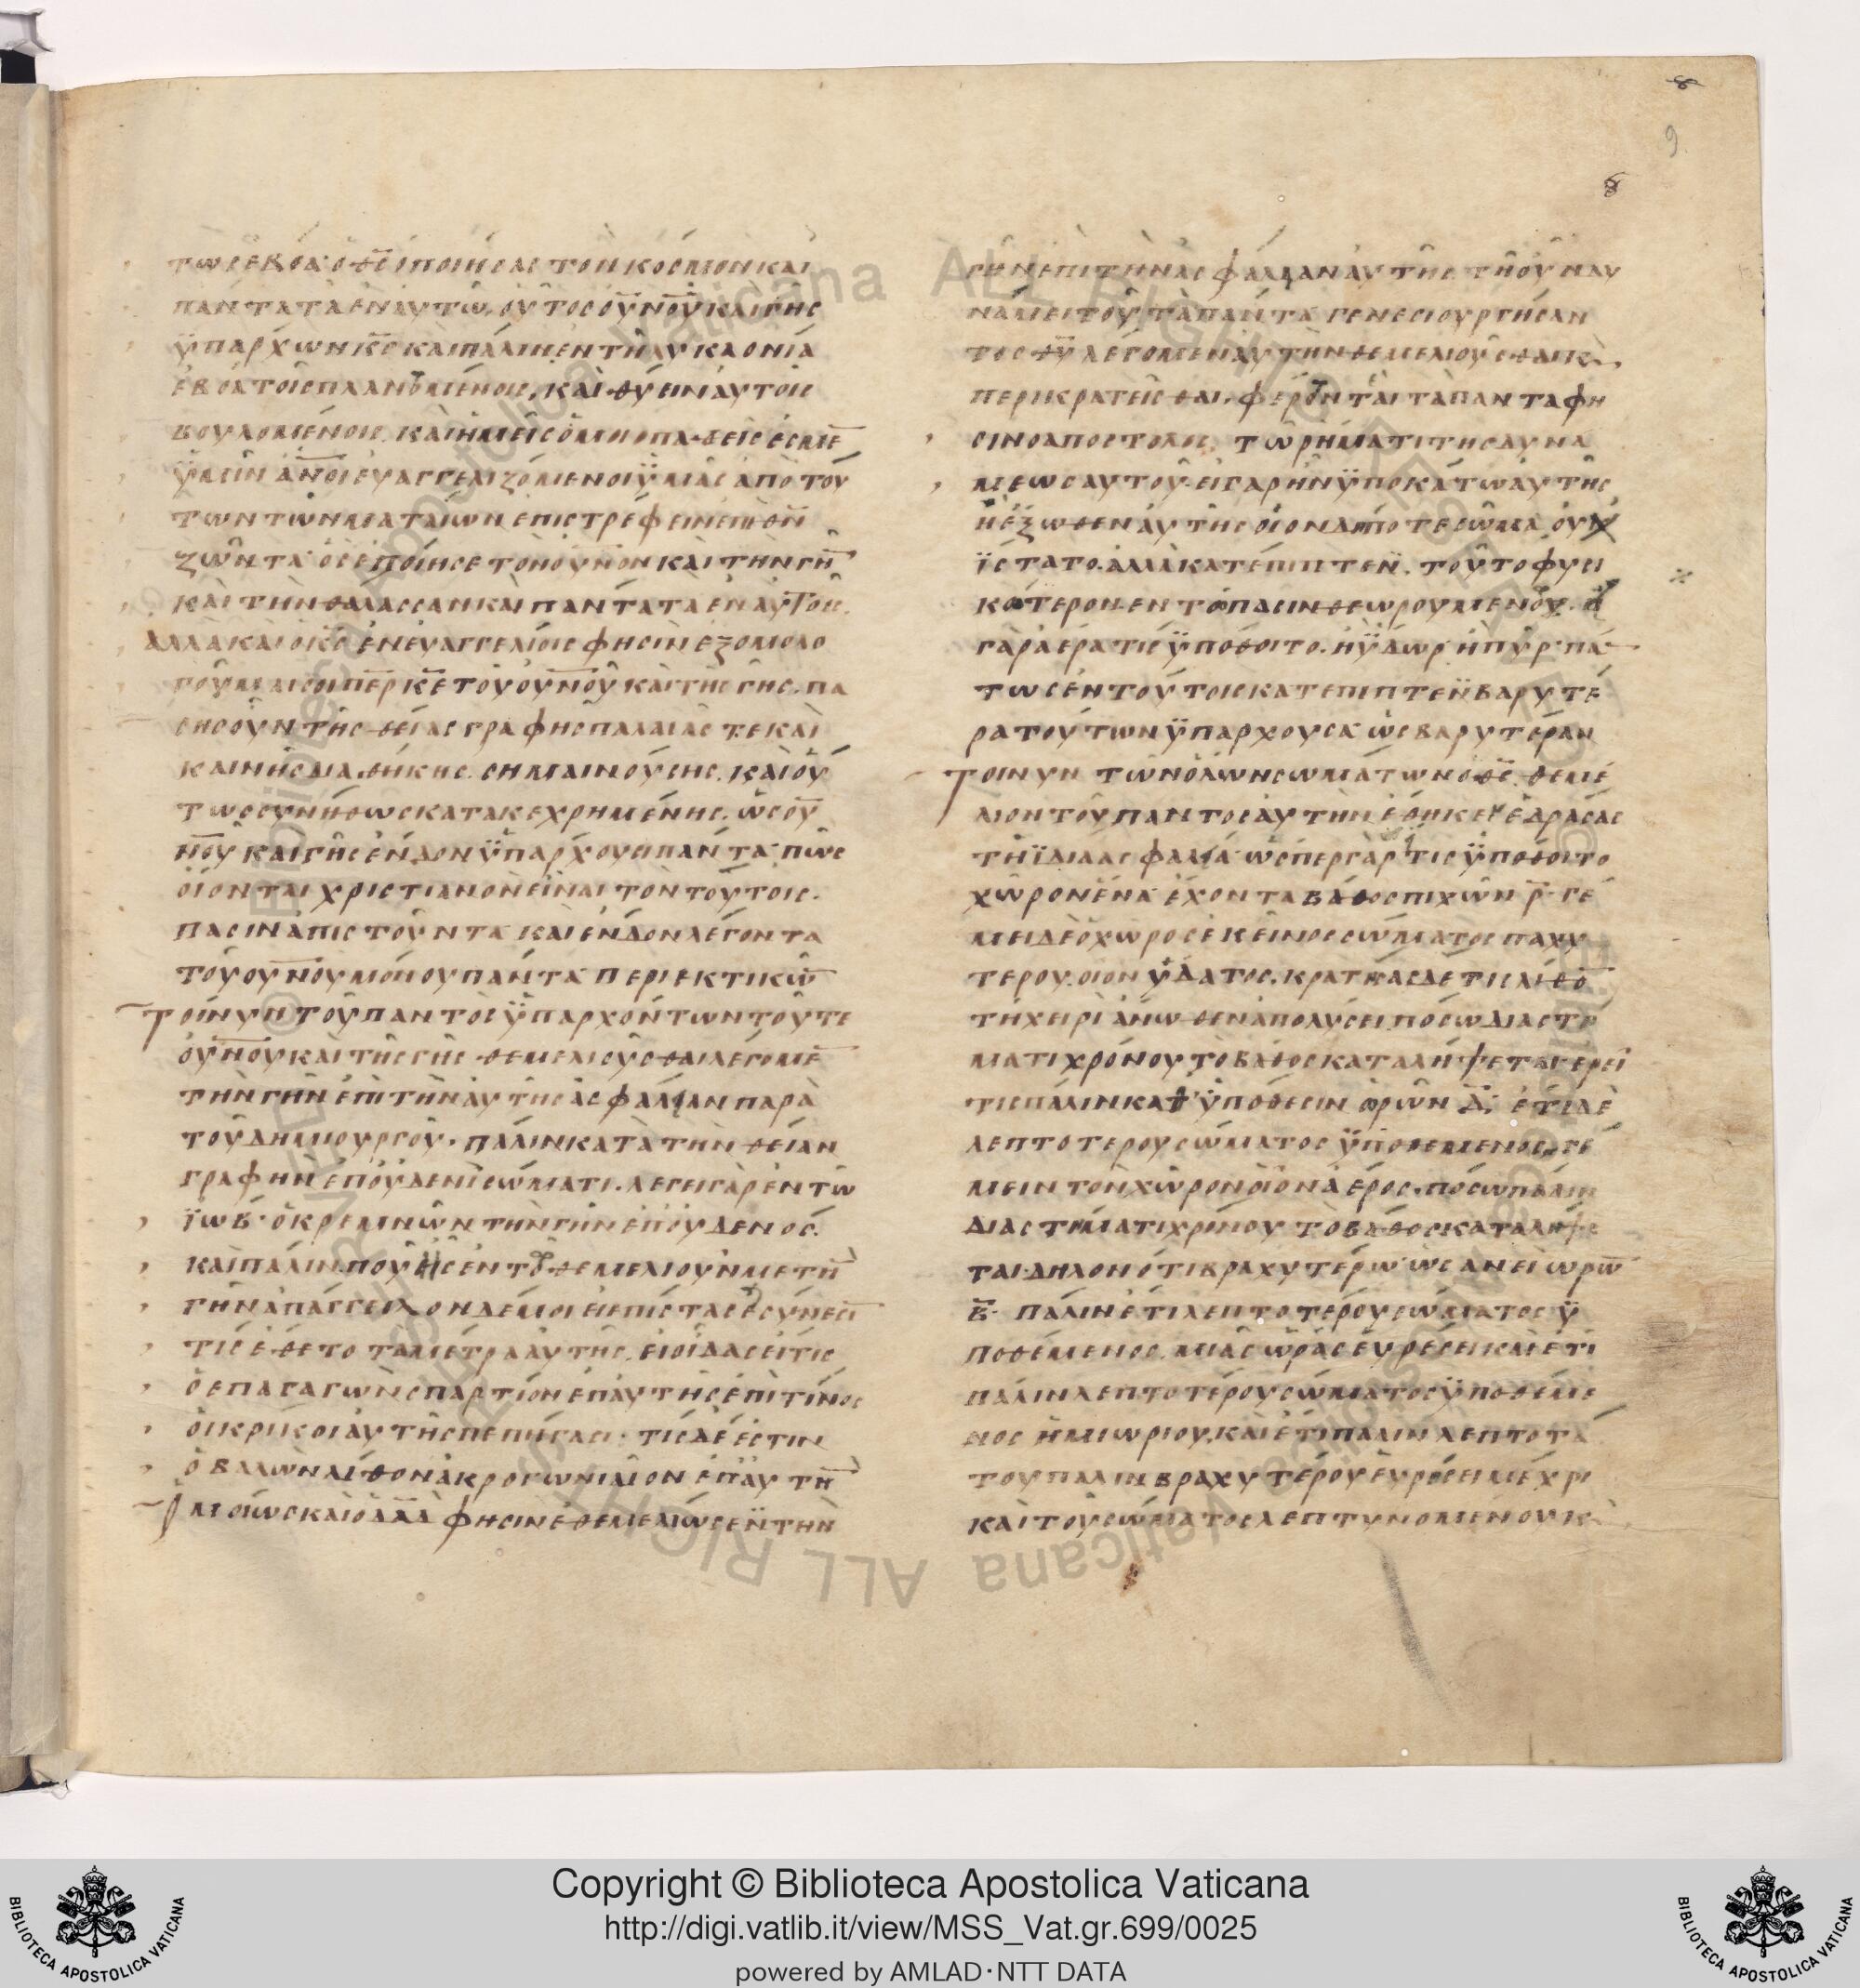 8
9
8
τως ἐβόα· ὁ θ̅ς̅ ὁ ποιήσας τὸν κόσμον καὶ
πάντα τὰ ἐν αὐτῶ, οὗτος οὐ̅ν̅ο̅ῦ̅ καὶ γῆς
ϋπάρχων κ̅ς̅ καὶ πάλιν ἐν τῆ λυκαονία
ἐβόα τοῖς πλανωμένοις, καὶ θύειν αὐτοῖς
βουλομένοις. καὶ ἡμεῖς ὁμοιοπαθεῖς ἐσμε̅
ϋμῖν α̅ν̅ο̅ι̅ εὐαγγελιζόμενοι ϋμᾶς ἀπὸ τού
των τῶν ματαίων ἐπιστρέφειν ἐπὶ θ̅ν̅
ζῶντα· ὃς ἐποίησε τὸν ο̅υ̅ν̅ο̅ν̅ καὶ τὴν γῆ̅
καὶ τὴν θάλασσαν καὶ πάντα τὰ ἐν αὐτοῖς.
ἀλλὰ καὶ ὁ κ̅ς̅ ἐν εὐαγγελίοις φησὶν ἐξομολο
γοῦμαι σοι π̅ε̅ρ̅ κ̅ε̅ τοῦ ο̅υ̅ν̅ο̅ῦ̅ καὶ τῆς γῆς. πά
σης οὖν τῆς θείας γραφῆς παλαιᾶς τε καὶ
καινῆς διαθήκης σημαινούσης, καὶ οὕ
τως συνήθως κατακεχρημένης, ὡς ο̅υ̅
ν̅ο̅ῦ̅ καὶ γῆς ἔνδον ϋπάρχουσι πάντα· πῶς
οἴονται χριστιανὸν εἶναι τὸν τούτοις
πᾶσιν ἀπιστοῦντα καὶ ἔνδον λέγοντα
τοῦ ο̅υ̅ν̅ο̅ῦ̅ μόνου πάντα περιεκτικῶ̅
τοίνυν τοῦ παντὸς ϋπαρχόντων τοῦ τε
ο̅υ̅ν̅ο̅ῦ̅ καὶ τῆς γῆς θεμελιοῦσθαι λέγομε̅
τὴν γῆν ἐπὶ τὴν αὐτῆς ἀσφάλειαν παρὰ
τοῦ δημιουργοῦ· πάλιν κατὰ τὴν θείαν
γραφὴν ἐπ' οὐδενὶ σώματι. λέγει γὰρ ἐν τῶ
ϊώβ· ὁ κρεμνῶν τὴν γῆν ἐπ' οὐδενός.
καὶ πάλιν ποῦ ἦς ἐν τῶ θεμελιοῦν με τὴ̅
γῆν ἀπάγγειλον δέ μοι εἰ ἐπίστασαι σύνεσι̅
τίς ἔθετο τὰ μέτρα αὐτῆς, εἰ οἶδας εἴ τις
ὁ ἐπαγαγὼν σπαρτίον ἐπ' αὐτῆς ἐπὶ τίνος
οἱ κρίκοι αὐτῆς πεπήγασι· τίς δέ ἐστιν
ὁ βαλὼν λίθον ἀκρογωνιαῖον ἐπ' αὐτῆ̅
ὁμοίως καὶ ὁ δ̅α̅δ̅ φησὶν ἐθεμελίωσεν τὴν
γῆν ἐπὶ τὴν ἀσφάλειαν αὐτῆς τῆ οὖν δυ
νάμει τοῦ τὰ πάντα γενεσιουργήσαν
τος θ̅υ̅ λέγομεν αὐτὴν θεμελιοῦσθαι κ(αὶ)
περικρατεῖσθαι. φέρων τὲ τὰ πάντα φη
σὶν ὁ ἀπόστολος τῶ ῥήματι τῆς δυνά
μεως αὐτοῦ· εἰ γὰρ ἦν ϋποκάτω αὐτῆς
ἢ ἔξωθεν αὐτῆς οἱονδήποτε σῶμα οὐχ
ϊστατο. ἀλλὰ κατέπιπτεν. τοῦτο φυσι
κώτερον ἐν τοῖς πᾶσιν θεωρούμενον. εἰ
γὰρ ἀέρα τις ϋπόθοιτο. ἢ ϋδωρ ἢ πῦρ· πά̅
τως ἐν τούτοις κατέπιπτεν βαρυτέ
ρα τούτων ϋπάρχουσα ὡς βαρυτέραν
τοίνυν τῶν ὅλων σωμάτων ὁ θ̅ς̅ θεμέ
λιον τοῦ παντὸς αὐτὴν ἔθηκεν ἑδράσας
τῆ ϊδία ἀσφαλεία· ὥσπερ γὰρ εἴ τις ϋπόθοιτο
χῶρον ἕνα ἔχοντα βάθος πιχῶν ρ̅· γέ
μει δὲ ὁ χῶρος ἐκεῖνος σώματος παχυ
τέρου. οἷον ὕδατος. κρατήσας δέ τις λίθο̅
τῆ χειρὶ ἄνωθεν ἀπολύσει πόσω διαστή
ματι χρόνου τὸ βάθος καταλήψεται· ἐρεῖ
τις πάλιν καθ' ϋπόθεσιν ὡρῶν δ̅· ἔτι δὲ
λεπτοτέρου σώματος ϋποθέμενος γέ
μειν τὸν χῶρον οἷον ἀέρος, πόσω πάλιν
διαστήματι χρόνου τὸ βάθος καταλήψε
ται· δῆλον ὅτι βραχυτέρω ὡς ἂν εἰ ὡρῶ̅
β̅· πάλιν ἔτι λεπτοτέρου σώματος ϋ
ποθέμενος. μιᾶς ὥρας εὑρέσει καὶ ἔτι
πάλιν λεπτοτέρου σώματος ϋποθέμε
νος ἡμιωρίου, καὶ ἔτι πάλιν λεπτοτά
του πάλιν βραχυτέρου εὑρέσει μέχρι
καὶ τοῦ σώματος λεπτυνομένου κ(αὶ)
Copyright © Biblioteca Apostolica Vaticana
http://digi.vatlib.it/view/MSS_Vat.gr.699/0025
powered by AMLAD·NTT DATA
BIBLIOTECA APOSTOLICA VATICANA
BIBLIOTECA APOSTOLICA VATICANA